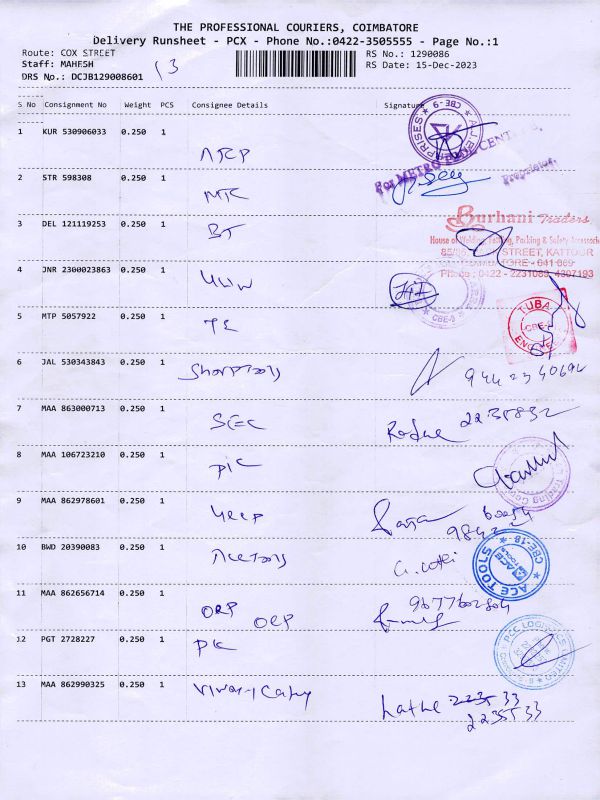 THE PROFESSIONAL COURIERS, COIMBATORE
Delivery Runsheet - PCX - Phone No.:0422-3505555 - Page No.:1
Route: COX STREET RS No.: 1290086
Staff: MAHESH 13 RS Date: 15-Dec-2023
DRS No.: DCJB129008601
S No Consignment No Weight PCS Consignee Details Signature
1 KUR 530906033 0.250 1
CBE-9
For METRO
Proprietor.
2 STR 598308 0.250 1
MTC
3 DEL 121119253 0.250 1
BT
Burhani Traders
House of Welding, Packing & Safety Accessories
STREET, KATTOOR
Phone : 0422 - 2231089, 4307193
4 JNR 2300023863 0.250 1
CBE-9
TUBA
CBE-
5 MTP 5057922 0.250 1
TE
6 JAL 530343843 0.250 1
Sharptools
7 MAA 863000713 0.250 1
SEC
2235832
8 MAA 106723210 0.250 1
PIC
Trading
9 MAA 862978601 0.250 1
10 BWD 20390083 0.250 1
Acetools
ACE TOOLS
CBE-18
11 MAA 862656714 0.250 1
OEP
9677602804
12 PGT 2728227 0.250 1
PK
PCC LOGISTICS LIMITED
13 MAA 862990325 0.250 1
Lathe 2235 33
2235533